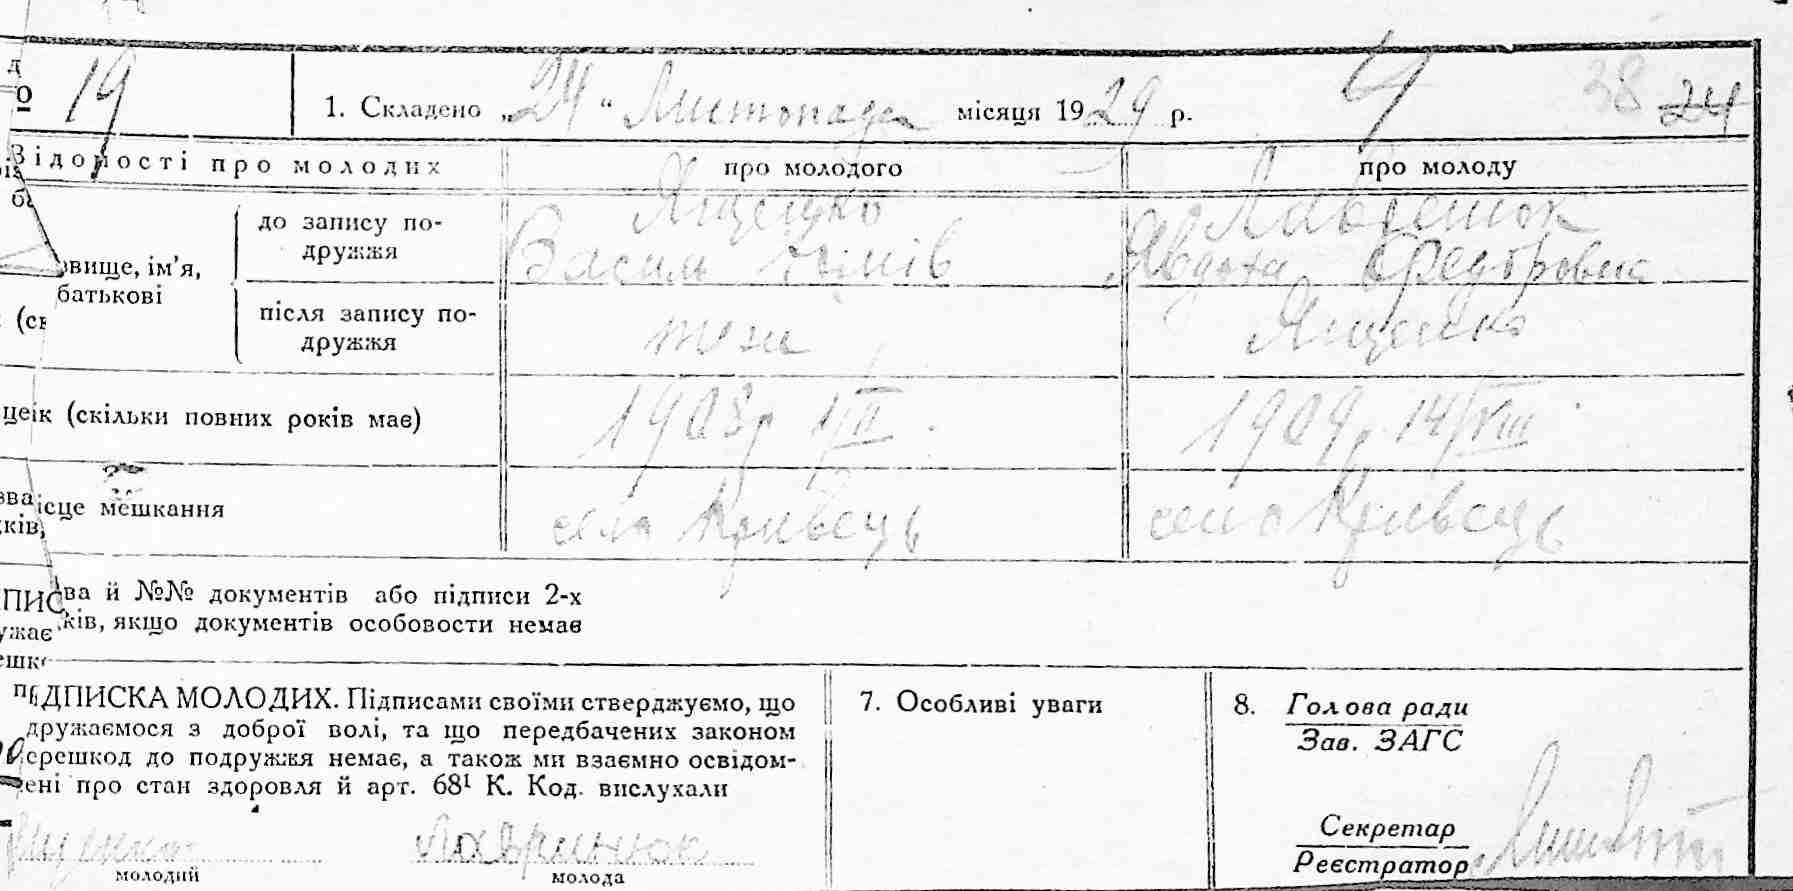 д
о 19
1. Складено „24“ Листопада місяця 1929 р.
38 24
Відомості про молодих
про молодого
про молоду
звище, ім'я,
батькові
до запису по-
дружжя
Ященко
Василь
Явдоха Федоровна
(св
після запису по-
дружжя
тж
Ященко
цеік (скільки повних років має)
1903р 1/II
1909р. 14/VIII
ісце мешкання
село Кривець
село Кривець
ва й №№ документів або підписи 2-х
ків, якщо документів особовости немає
ПИС
ужає
ешк
ПІДПИСКА МОЛОДИХ. Підписами своїми стверджуємо, що
дружаємося з доброї волі, та що передбачених законом
ерешкод до подружжя немає, а також ми взаємно освідом-
ені про стан здоровля й арт. 68¹ К. Код. вислухали
молодий
молода
7. Особливі уваги
8. Голова ради
Зав. ЗАГС
Секретар
Реєстратор